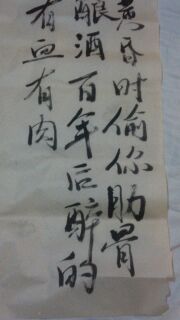 黄昏时偷你肋骨
酿酒百年后醉的
有血有肉